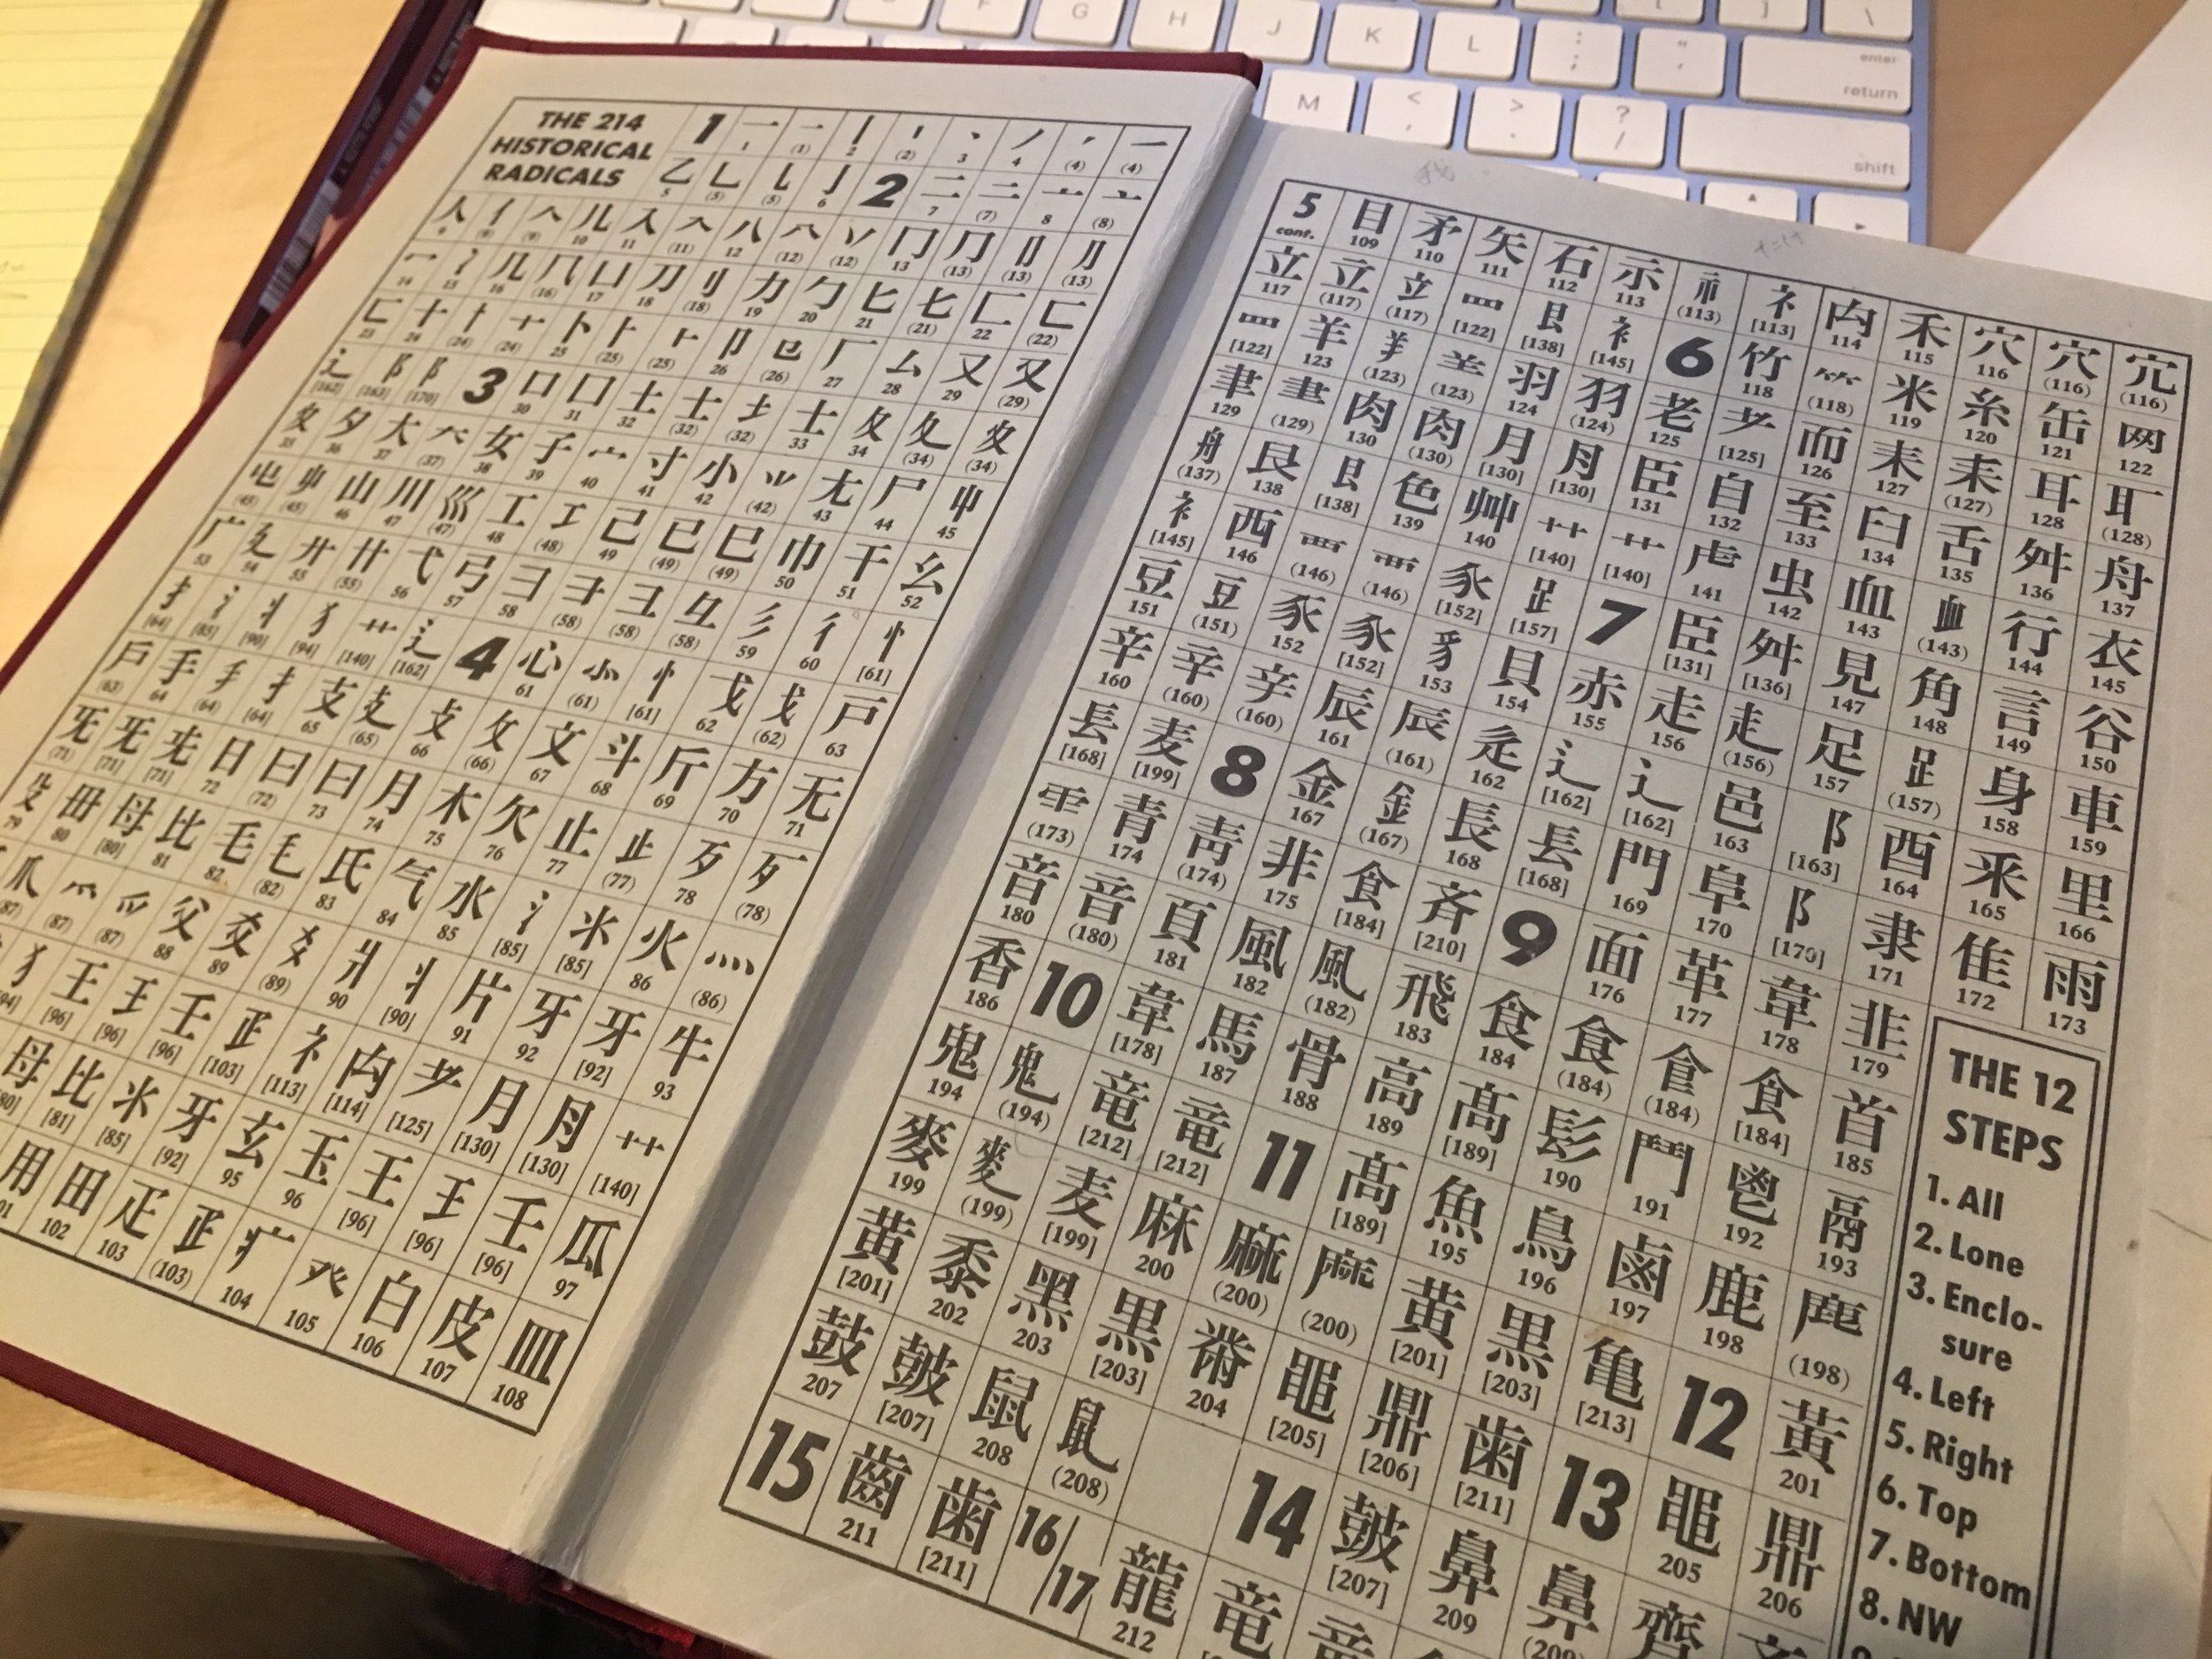 THE 214
HISTORICAL
RADICALS
1 一 1 一 (1) 丨 2 丨 (2) 丶 3 丿 4 (4) (4)
乙 5 乚 (5) (5) 亅 6 2 二 7 二 (7) 亠 8 亠 (8)
人 9 亻 (9) 𠆢 (9) 儿 10 入 11 (11) 八 12 (12) 丷 (12) 冂 13 (13) (13) (13)
冖 14 冫 15 几 16 (16) 凵 17 刀 18 刂 (18) 力 19 勹 20 匕 21 (21) 匚 22 (22)
匸 23 十 24 (24) (24) 卜 25 (25) (25) 卩 26 㔾 (26) 厂 27 厶 28 又 29 又 (29)
辶 [162] 阝 [163] 阝 [170] 3 口 30 囗 31 土 32 土 (32) 土 (32) 士 33 夂 34 夂 (34) (34)
夊 35 夕 36 大 37 (37) 女 38 子 39 宀 40 寸 41 小 42 (42) 尢 43 尸 44 屮 45
屯 (45) (45) 山 46 川 47 巛 (47) 工 48 工 (48) 己 49 已 (49) 巳 (49) 巾 50 干 51 幺 52
广 53 廴 54 廾 55 (55) 弋 56 弓 57 彐 58 (58) (58) 彑 (58) 彡 59 彳 60 忄 [61]
扌 [64] 氵 [85] 丬 [90] 犭 [94] 艹 [140] 辶 [162] 4 心 61 㣺 (61) 忄 [61] 戈 62 戈 (62) 戸 63
戸 (63) 手 64 手 (64) 扌 [64] 支 65 (65) 攴 66 攵 (66) 文 67 斗 68 斤 69 方 70 无 71
旡 (71) 旡 [71] [71] 日 72 日 (72) 曰 73 月 74 木 75 欠 76 止 77 止 (77) 歹 78 歹 (78)
殳 79 毋 80 母 [80] 比 81 毛 82 毛 (82) 氏 83 气 84 水 85 氵 [85] 氺 [85] 火 86 灬 (86)
爪 (87) 爫 (87) 爫 (87) 父 88 爻 89 (89) 爿 90 丬 [90] 片 91 牙 92 牙 [92] 牛 93
犭 [94] 王 [96] 王 [96] 壬 [96] [103] 礻 [113] 禸 [114] 耂 [125] 月 [130] 月 [130] 艹 [140]
母 [80] 比 [81] 氺 [85] 牙 [92] 玄 95 玉 96 王 [96] 王 [96] 壬 [96] 瓜 97
用 田 102 疋 103 (103) 疒 104 癶 105 白 106 皮 107 皿 108
5 cont. 目 109 矛 110 矢 111 石 112 示 113 (113) 礻 [113] 禸 114 禾 115 穴 116 穴 (116) 穴 (116)
立 117 立 (117) 立 (117) 罒 [122] 艮 [138] 衤 [145] 6 竹 118 (118) 米 119 糸 120 缶 121 网 122
罒 [122] 羊 123 (123) (123) 羽 124 羽 (124) 老 125 耂 [125] 而 126 耒 127 耒 (127) 耳 128 耳 (128)
聿 129 (129) 肉 130 肉 (130) 月 [130] 月 [130] 臣 131 自 132 至 133 臼 134 舌 135 舛 136 舟 137
舟 (137) 艮 138 艮 [138] 色 139 艸 140 艹 [140] 艹 [140] 虍 141 虫 142 血 143 血 (143) 行 144 衣 145
衤 [145] 西 146 覀 (146) (146) 豕 [152] 𧾷 [157] 7 臣 [131] 舛 [136] 見 147 角 148 言 149 谷 150
豆 151 豆 (151) 豕 152 豕 [152] 豸 153 貝 154 赤 155 走 156 走 (156) 足 157 𧾷 (157) 身 158 車 159
辛 160 辛 (160) 辛 (160) 辰 161 辰 (161) 辵 162 辶 [162] 辶 [162] 邑 163 阝 [163] 酉 164 釆 165 里 166
镸 [168] 麦 [199] 8 金 167 釒 (167) 長 168 镸 [168] 門 169 阜 170 阝 [170] 隶 171 隹 172 雨 173
⻗ (173) 青 174 靑 (174) 非 175 食 [184] 斉 [210] 9 面 176 革 177 韋 178 韭 179
音 180 音 (180) 頁 181 風 182 風 (182) 飛 183 食 184 食 (184) 飠 (184) 食 [184] 首 185
香 186 10 韋 [178] 馬 187 骨 188 高 189 髙 [189] 髟 190 鬥 191 鬯 192 鬲 193
鬼 194 鬼 (194) 竜 [212] 竜 [212] 11 髙 [189] 魚 195 鳥 196 鹵 197 鹿 198 鹿 (198)
麥 199 麥 (199) 麦 [199] 麻 200 麻 (200) 麻 (200) 黄 [201] 黒 [203] 亀 [213] 12 黃 201
黄 [201] 黍 202 黑 203 黒 [203] 黹 204 黽 [205] 鼎 [206] 歯 [211] 13 黽 205 鼎 206
鼓 207 鼔 [207] 鼠 208 鼠 (208) 14 鼔 [207] 鼻 209 鼻 (209) 齊
15 齒 211 歯 [211] 16/17 龍 212 竜
THE 12
STEPS
1. All
2. Lone
3. Enclo-
sure
4. Left
5. Right
6. Top
7. Bottom
8. NW
F
G
H
J
K
L
; :
' "
enter
return
M
< ,
> .
? /
shift
[
]
\